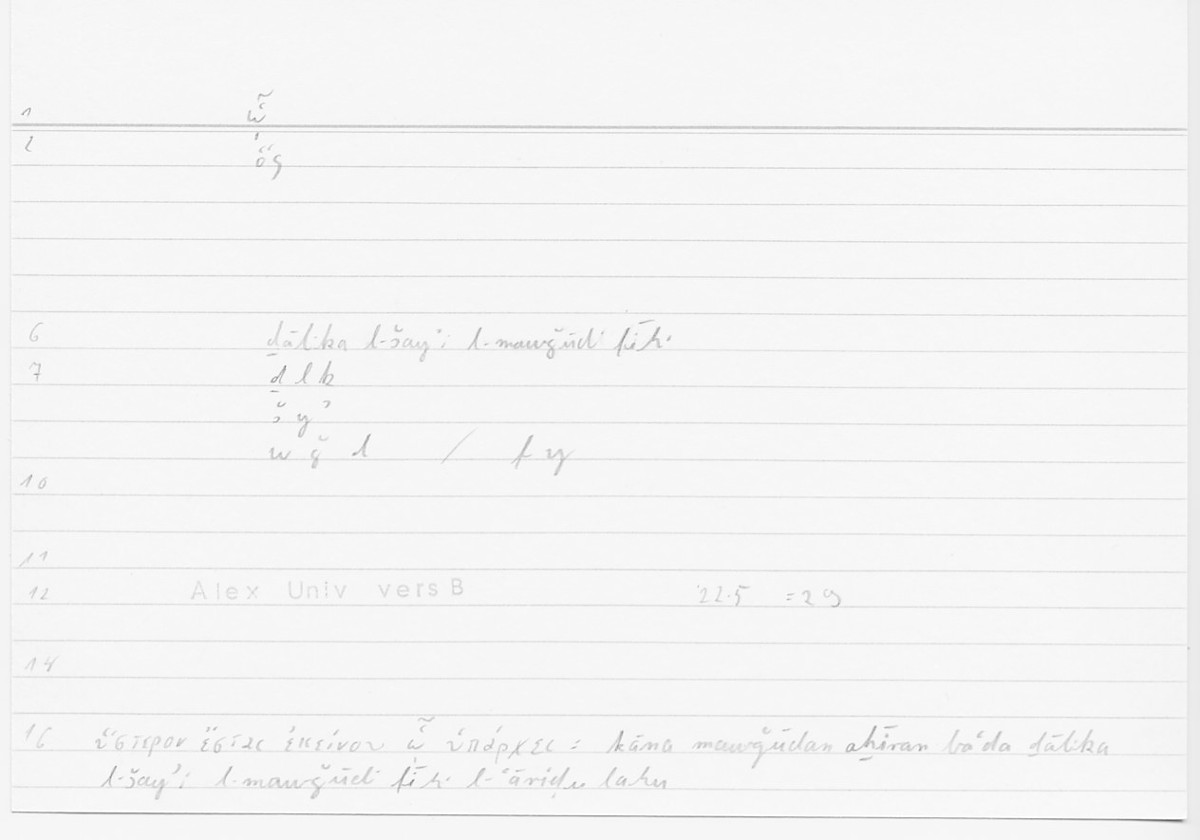 1 ᾧ
2 ὅς
6 ḏālika l-šayʾi l-mawǧūdi fīhi
7 ḏ l k
š y ʾ
w ǧ d / f y
10
11
12 Alex Univ vers B 22.5 = 29
14
16 ὕστερον ἔσται ἐκείνου ᾧ ὑπάρχει : kāna mawǧūdan aḫīran baʿda ḏālika
l-šayʾi l-mawǧūdi fīhi l-ʿāriḍu lahu